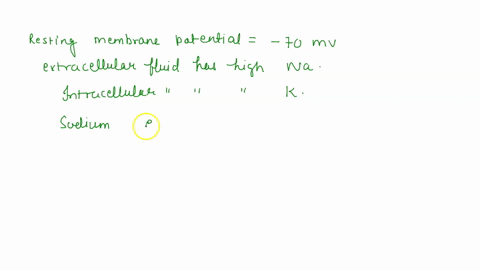 Resting membrane potential = -70 mv
extracellular fluid has high Na.
Intracellular " " " K.
Sodium P